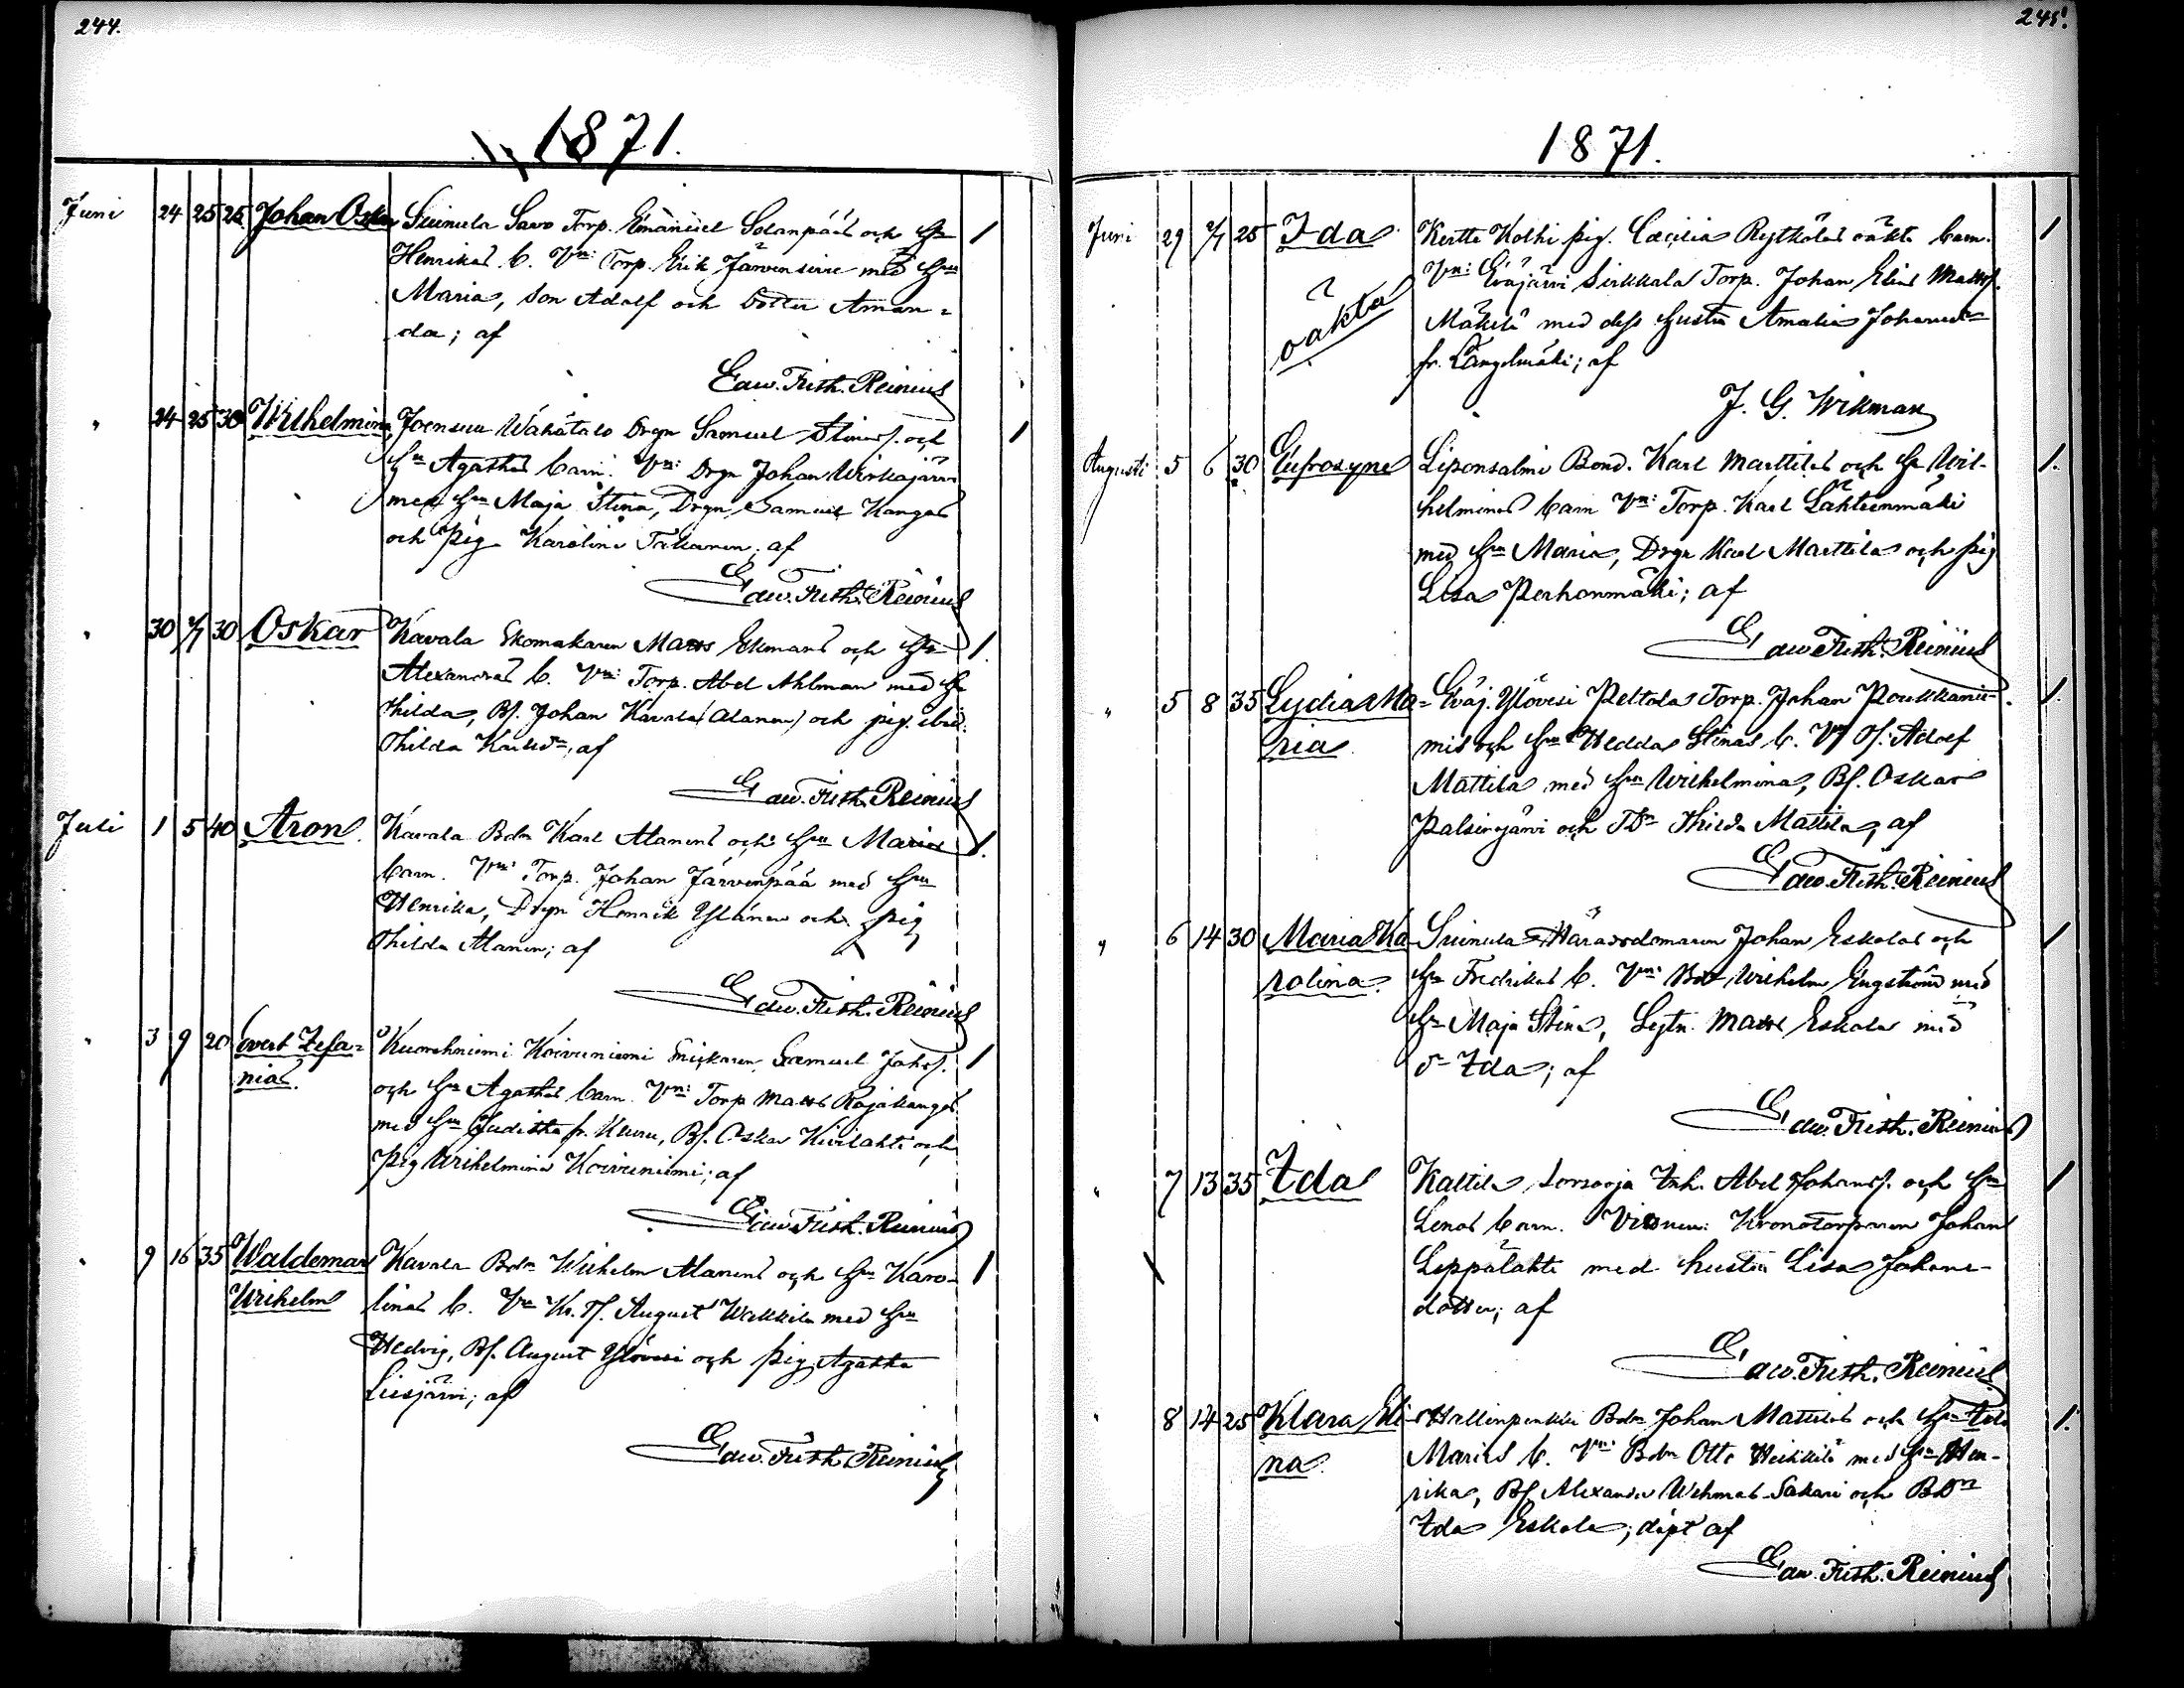 244.
1871.
Juni 24 25 25 Johan Oskar Suinula Savo Torp. Emanuel Solanpääs och Hu
Henrikas b. Vn: Torp. Erik Järvensivu med Hun
Maria, son Adolf och Dotter Aman-
da; af
Edw. Frith. Reinius
" 24 25 30 Wilhelmina Joensuu Wähätalo Drgn Samuel Stinas s. och
Hun Agathas barn. Vn: Drgn Johan Wirkajärvi
med Hun Maja Stina, Drgn Samuel Kangas
och pig Karolina Takanen; af
Edw. Frith. Reinius
" 30 2/7 30 Oskar Kavala Skomakaren Matts Ekmans och Hu
Alexandras b. Vn: Torp. Abel Ahlman med Hu
Thilda, Bs. Johan Kavala (Alanen) och pig. ibid.
Thilda af
Edw. Frith. Reinius
Juli 1 5 40 Aron Kavala Bdn Karl Alanens och Hun Marias
barn. Vn: Torp. Johan Järvenpää med Hun
Henrika, Drgn Henrik Ylänen och pig
Thilda Alanen; af
Edw. Frith. Reinius
" 3 9 20 Evert Zefa- Kuorehniemi Koivuniemi Snickaren Samuel Johss.
nias. och Hun Agathas barn. Vn: Torp Matts Rajakangas
med Hun Juditha fr. Keuru, Bs. Oskar Kivilahti och
pig Wilhelmina Koivuniemi; af
Edw. Frith. Reinius
" 9 16 35 Waldemar Kavala Bdn Wilhelm Alanens och Hun Karo-
Wilhelm linas b. Vn Kr. Ts. August Wakkila med Hun
Hedvig, Bs. August Ylövesi och pig Agatha
Liesjärvi; af
Edw. Frith. Reinius
245.
1871.
Juni 29 2/7 25 Ida Kertte Kolhi pig. Cæcilia Rytkölas oäkta barn.
oäkta Vn: Eväjärvi Sirkkala Torp. Johan Elias Mattss.
Mäkelä med dess hustru Amalia Johansdr
fr. Längelmäki; af
J. G. Wikman
Augusti 5 6 30 Eufrosyne Liponsalmi Bond. Karl Marttilas och Hu Wil-
helminas barn Vn: Torp. Karl Lähteenmäki
med Hun Maria, Drgn Karl Marttila och pig
Lisa Perhonmäki; af
Edw. Frith. Reinius
" 5 8 35 Lydia Ma- Eväj. Ylövesi Peltola Torp. Johan Poukkanie-
ria mis och Hun Hedda Stinas b. Vn Adolf
Mattila med Hun Wilhelmina, Bs. Oskar
Palsinajärvi och TDr Thilda Mattila, af
Edw. Frith. Reinius
" 6 14 30 Maria Ka- Suinula Häradsdomaren Johan Eskolas och
rolina. Hu Fredrikas b. Vn: Bd Wilhelm Engström med
Hu Maja Stina, Matts Eskola med
dr Ida; af
Edw. Frith. Reinius
" 7 13 35 Ida Kaltila Sorsarja Inh. Abel Johanss. och Hun
Lenas barn. Vittnen: Kronotorparen Johan
Leppälahti med hustru Lisa Johans-
dotter; af
Edw. Frith. Reinius
" 8 14 25 Klara Eli- Hallinpenkki Bdn Johan Mattilas och Hun Ida
na Marias b. Vn: Bdn Otto Heikkilä med Hun Hen-
rika, Bs Alexander Wehmas-Sakari och BDr
Ida Eskola; döpt af
Edw. Frith. Reinius